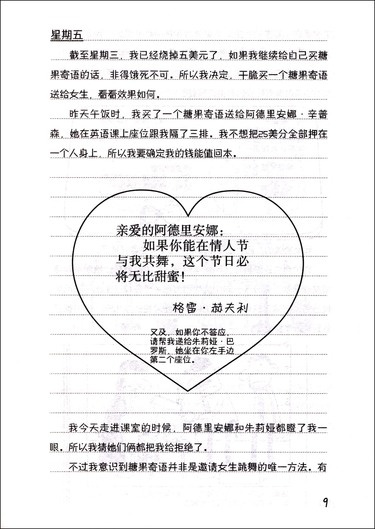 星期五
截至星期三，我已经烧掉五美元了，如果我继续给自己买糖
果寄语的话，非得饿死不可。所以我决定，干脆买一个糖果寄语
送给女生，看看效果如何。
昨天午饭时，我买了一个糖果寄语送给阿德里安娜·辛普
森，她在英语课上座位跟我隔了三排。我不想把25美分全部押在
一个人身上，所以我要确定我的钱能值回本。
亲爱的阿德里安娜：
如果你能在情人节
与我共舞，这个节日必
将无比甜蜜！
格雷·赫夫利
又及，如果你不答应，
请帮我递给朱莉娅·巴
罗斯，她坐在你左手边
第二个座位。
我今天走进课室的时候，阿德里安娜和朱莉娅都瞪了我一
眼。所以我猜她们俩都把我给拒绝了。
不过我意识到糖果寄语并非是邀请女生跳舞的唯一方法。有
9